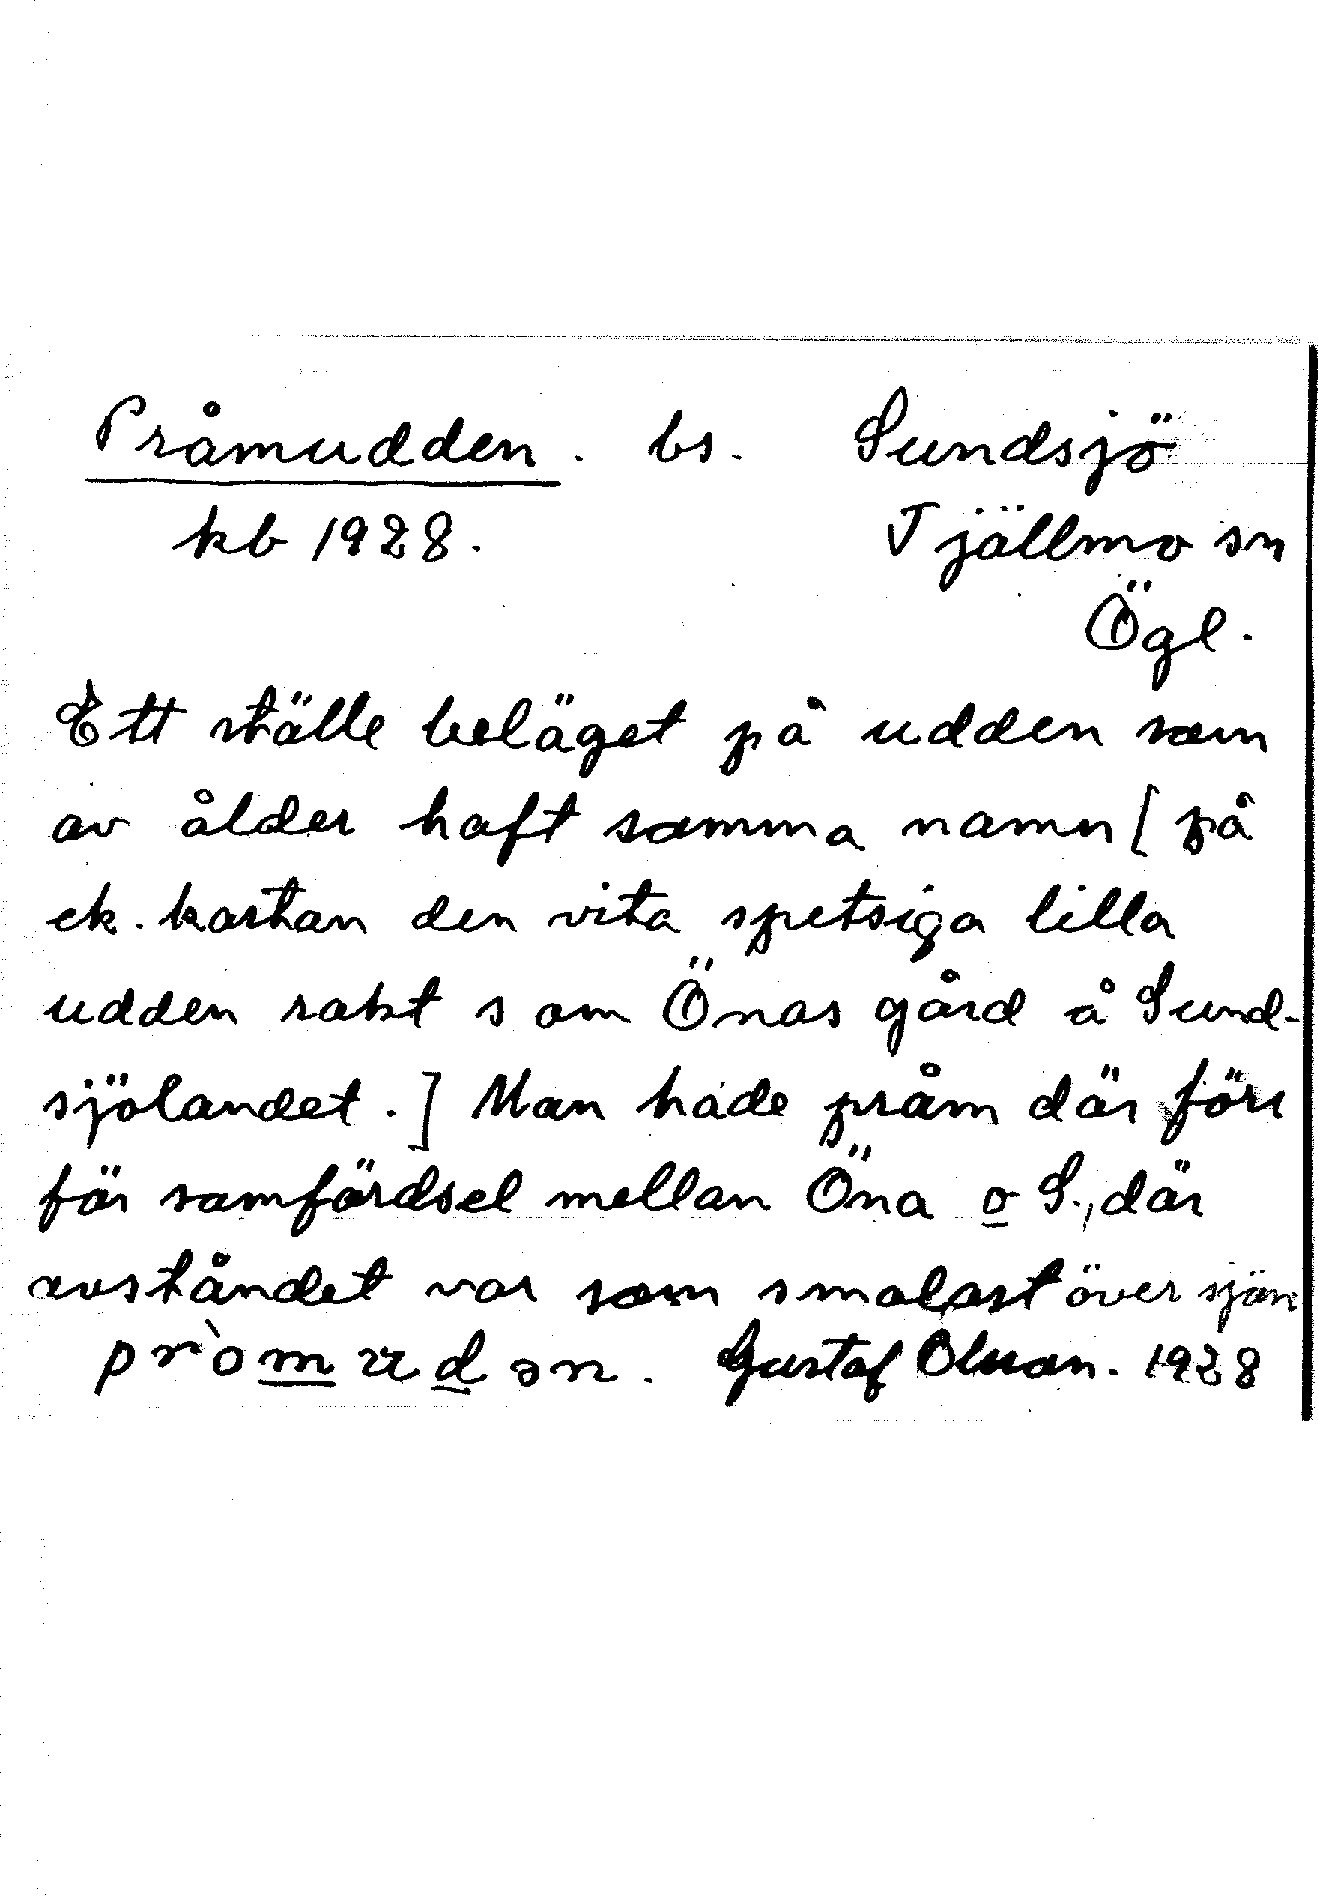 Pråmudden. bs. Sundsjö
kb 1928. Tjällmo sn
Ögl.
Ett ställe beläget på udden som
av ålder haft samma namn [på
ek. kartan den vita spetsiga lilla
udden rakt s om Önas gård å Sund-
sjölandet.] Man hade pråm där förr
för samfärdsel mellan Öna o S., där
avståndet var som smalast över sjön
pr`omudən. Gustaf Olsson. 1928